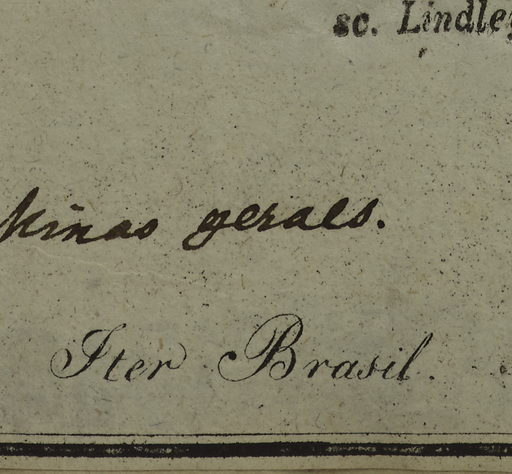 sc. Lindley
Minas geraes.
Iter Brasil.